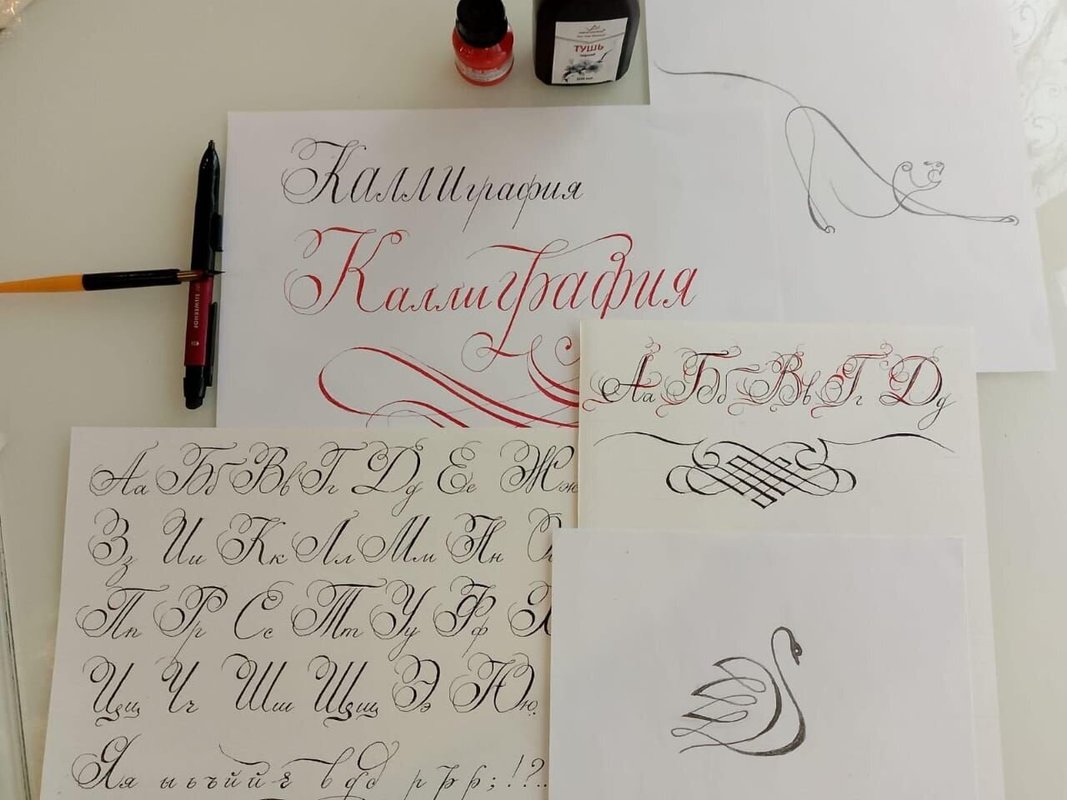 ТУШЬ
Каллиграфия
Каллиграфия
Аа Бб Вв Гг Дд
Аа Бб Вв Гг Дд Ее Жж
Зз Ии Кк Лл Мм Нн
Пп Рр Сс Тт Уу Фф Х
Цц Чч Шш Щщ Ээ Юю
Яя ы ь ъ й й ё в д д р р р ; ! ? . .